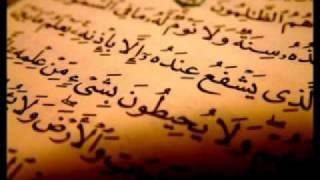 هُمُ الظَّٰلِمُونَ
خُذُهُۥ سِنَةٌ وَلَا نَوْمٌ لَّهُۥ مَا فِي السَّمَٰوَ
الَّذِي يَشْفَعُ عِندَهُۥٓ إِلَّا بِإِذْنِهِۦ يَعْلَمُ مَا بَيْ
وَلَا يُحِيطُونَ بِشَيْءٍ مِّنْ عِلْمِهِۦٓ
وَٱلْأَرْضَ وَلَا يَـُٔو